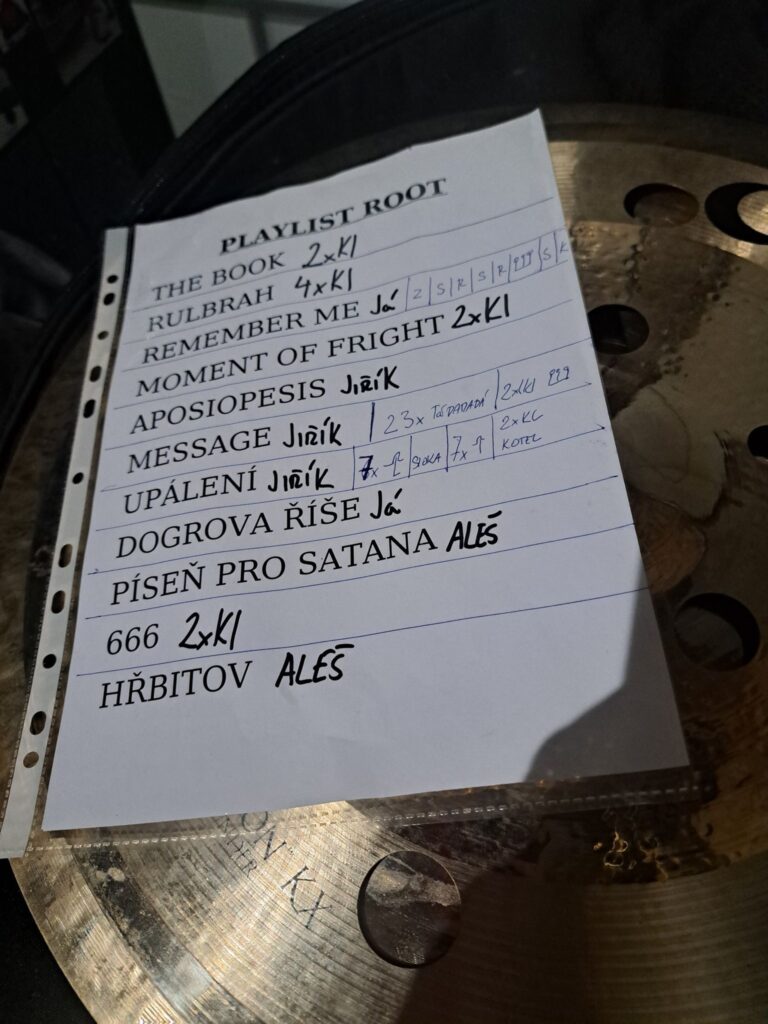 PLAYLIST ROOT
THE BOOK 2xKI
RULBRAH 4xKI
REMEMBER ME Já | Z | S | R | S | R | | S | K
MOMENT OF FRIGHT 2xKI
APOSIOPESIS JIŘÍK
MESSAGE JIŘÍK | 23x | 2xKI
UPÁLENÍ JIŘÍK | 7x ↑ | SLOKA | 7x ↑ | 2xKL KOTEL
DOGROVA ŘÍŠE Já
PÍSEŇ PRO SATANA ALEŠ
666 2xKI
HŘBITOV ALEŠ
ON KX